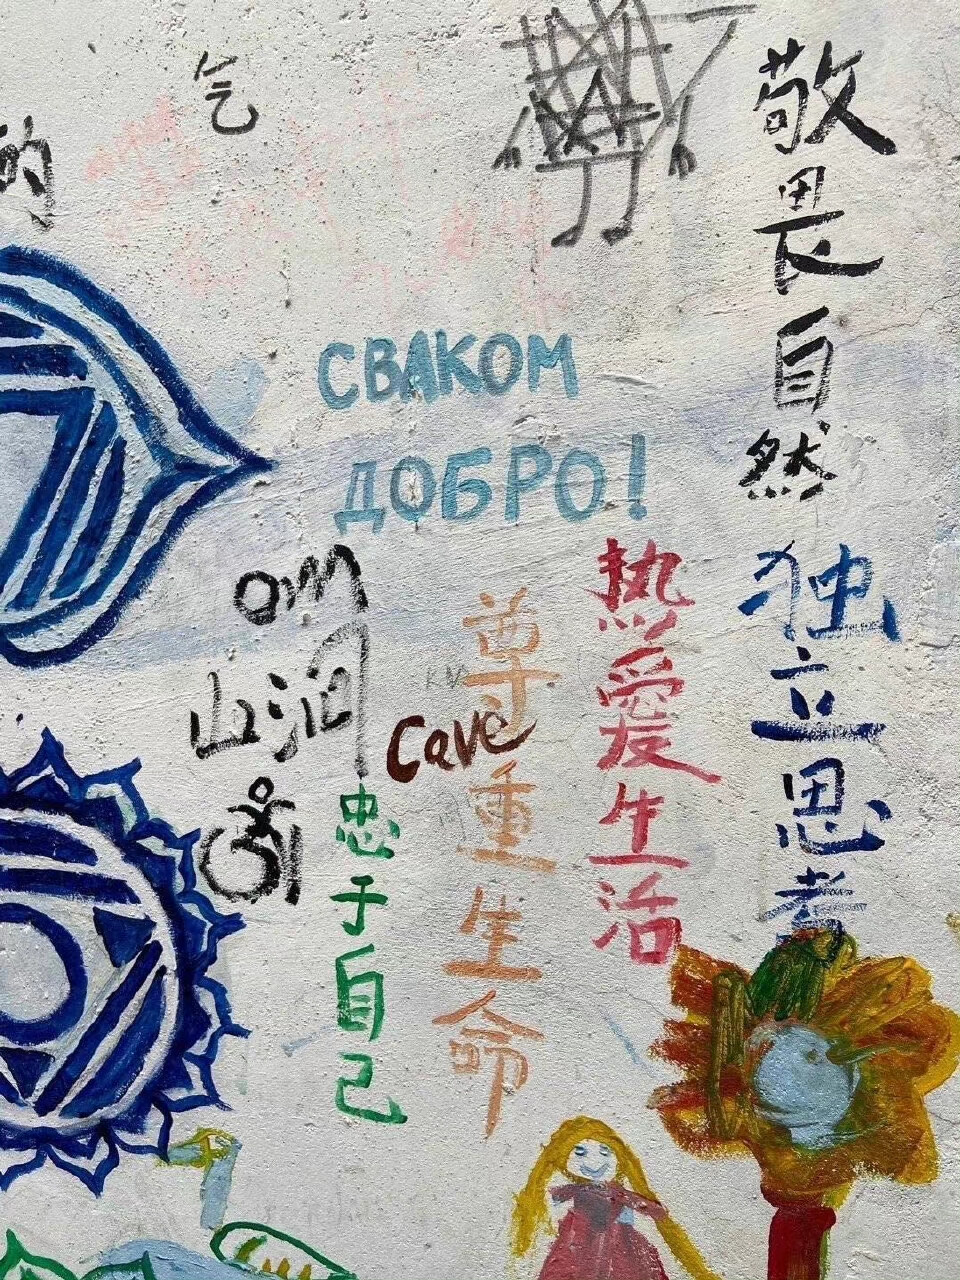 气
的
敬畏自然
СВАКОМ
ДОБРО!
om
山洞
Cave
热愛生活
独立思考
尊重生命
忠于自己